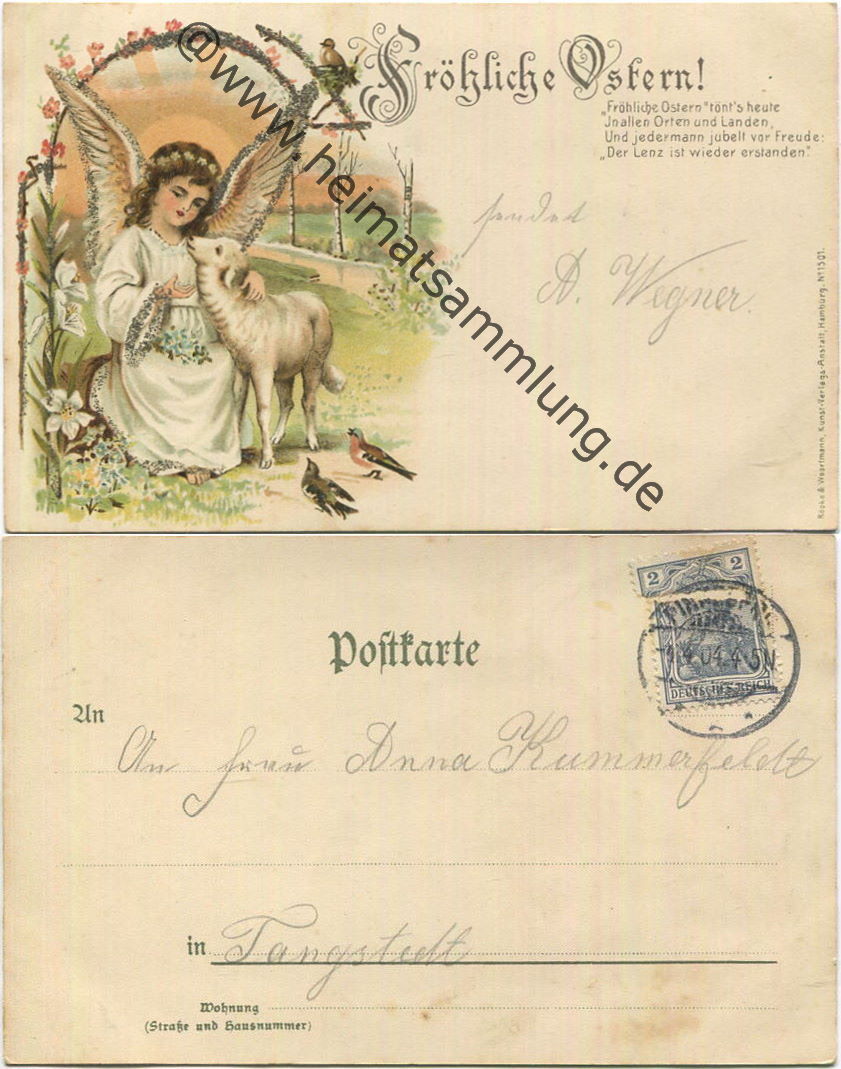 Fröhliche Ostern!
„Fröhliche Ostern" tönt's heute
Jn allen Orten und Landen,
Und jedermann jubelt vor Freude:
„Der Lenz ist wieder erstanden."
sendet
A. Wegner.
Köpke & Woortmann, Kunst-Verlags-Anstalt, Hamburg. № 1501.
@www.heimatsammlung.de
2 2
04.4-5N
DEUTSCHES REICH
Postkarte
An
An Frau Anna Kummerfeldt
in Tangstedt
Wohnung
(Straße und Hausnummer)